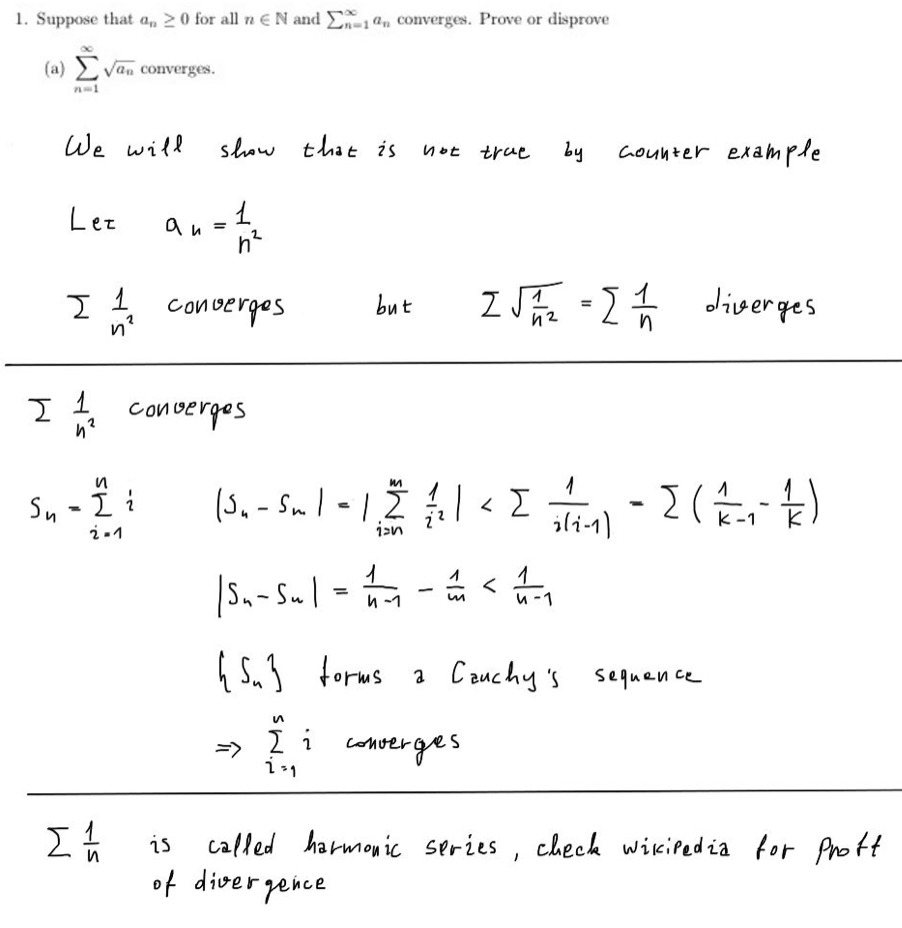 1. Suppose that aₙ ≥ 0 for all n ∈ ℕ and ∑_{n=1}^{∞} aₙ converges. Prove or disprove
(a) ∑_{n=1}^{∞} √aₙ converges.
We will show that is not true by counter example
Let aₙ = 1/n²
∑ 1/n² converges but ∑ √(1/n²) = ∑ 1/n diverges
∑ 1/n² converges
Sₙ = ∑_{i=1}^{n} i |Sₙ - Sₘ| = |∑_{i=n}^{m} 1/i²| < ∑ 1/(i(i-1)) = ∑ (1/(k-1) - 1/k)
|Sₙ - Sₘ| = 1/(n-1) - 1/m < 1/(n-1)
{Sₙ} forms a Cauchy's sequence
=> ∑_{i=1}^{n} i converges
∑ 1/n is called harmonic series, check wikipedia for Proff
of divergence